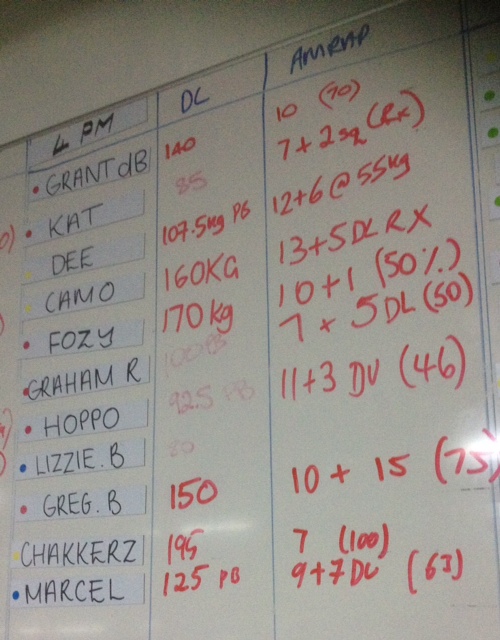 DL AMRAP
4 PM
GRANT dB 140 10 (70)
KAT 85 7+2sq (Rx)
DEE 107.5kg PB 12+6 @ 55kg
CAMO 160KG 13+5DL RX
FOZY 170kg 10+1 (50%)
GRAHAM R 100PB 7 + 5DL (50)
HOPPO 92.5 PB 11+3 DU (46)
LIZZIE.B 80
GREG.B 150 10 + 15 (75)
CHAKKERZ 195 7 (100)
MARCEL 125 PB 9+7DU (63)